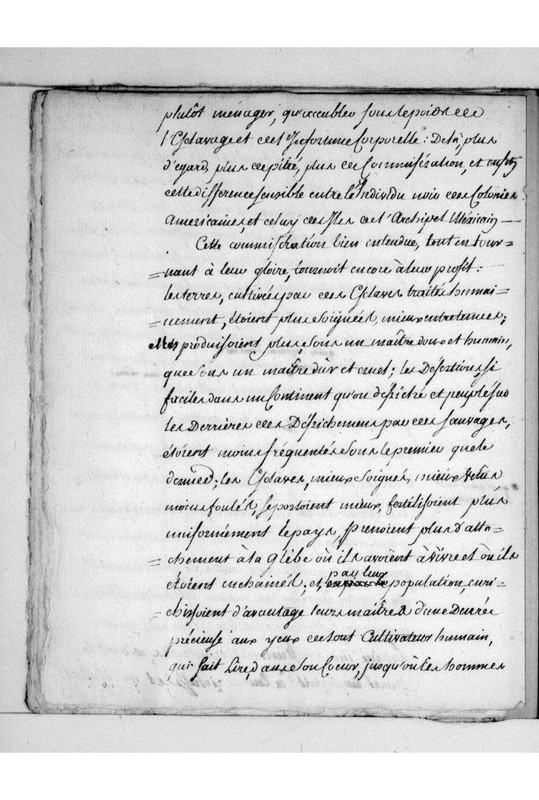 plutôt ménager, qu'accabler sous le poids de
l'Esclavage et de l'Infortune Corporelle : De là, plus
d'égard, plus de pitié, plus de Commisération, et enfin
cette difference sensible entre l'Individu noir des Colonies
americaines, et celuy des Isles de l'Archipel Méxicain —
Cette commisération bien entendue, tout en tour-
=nant à leur gloire, tournoit encore à leur profit :
les terres, cultivées par des Esclaves traités humai-
=nement, étoient plus soignées, mieux entretenues ;
Elles produisoient plus, sous un maître doux et humain,
que sous un maître dur et cruel ; les Désertions si
faciles dans un Continent qu'on défriche et peuplé sur
les Derrieres des Défrichemens par des Sauvages,
étoient moins fréquentes sous le premier que le
dernier ; les Esclaves, mieux Soignés, mieux vétus
moins foulés, se portoient mieux, fertilisoient plus
uniformément le pays, prenoient plus d'atta-
=chement à la Glèbe où ils avoient à vivre et où ils
étoient enchainés ; et par leur population, enri-
=chissoient d'avantage leurs maîtres d'une Denrée
précieuse aux yeux de tout Cultivateur humain,
qui fait lire, dans son Coeur, jusqu'où les hommes